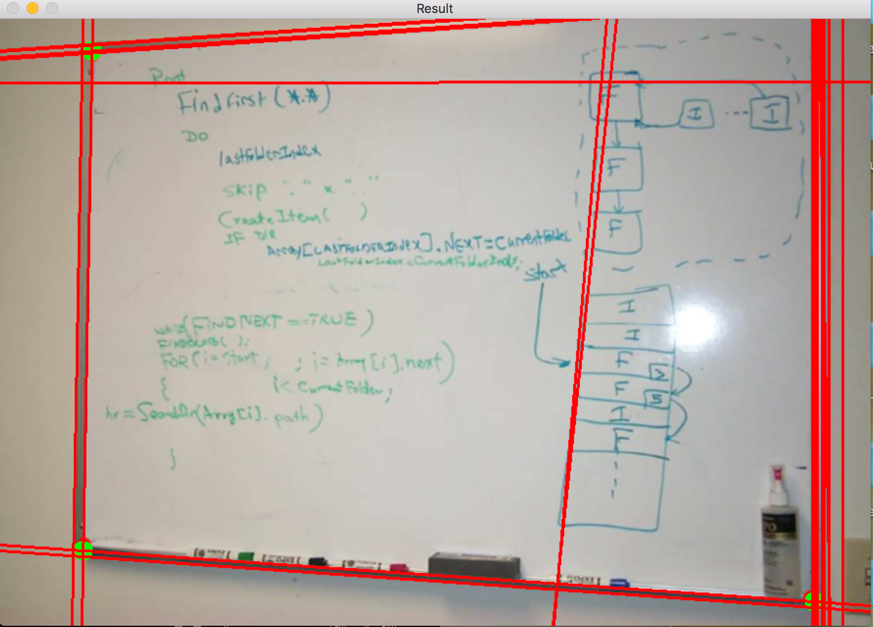 Result
Root
FindFirst(*.*)
DO
lastFolderIndex
Skip "." & ".."
CreateItem( )
IF DIR
Array[LastFolderIndex].NEXT=CurrentFolder
LastFolderIndex=CurrentFolderIndex;
while(FINDNEXT==TRUE)
FINDCLOSE( );
FOR(i=Start; ; i=Array[i].next)
{
i<CurrentFolder;
hr=SearchDir(Array[i].path)
}
F
I
...
I
F
F
Start
I
I
F
2
F
5
I
F
EXPO